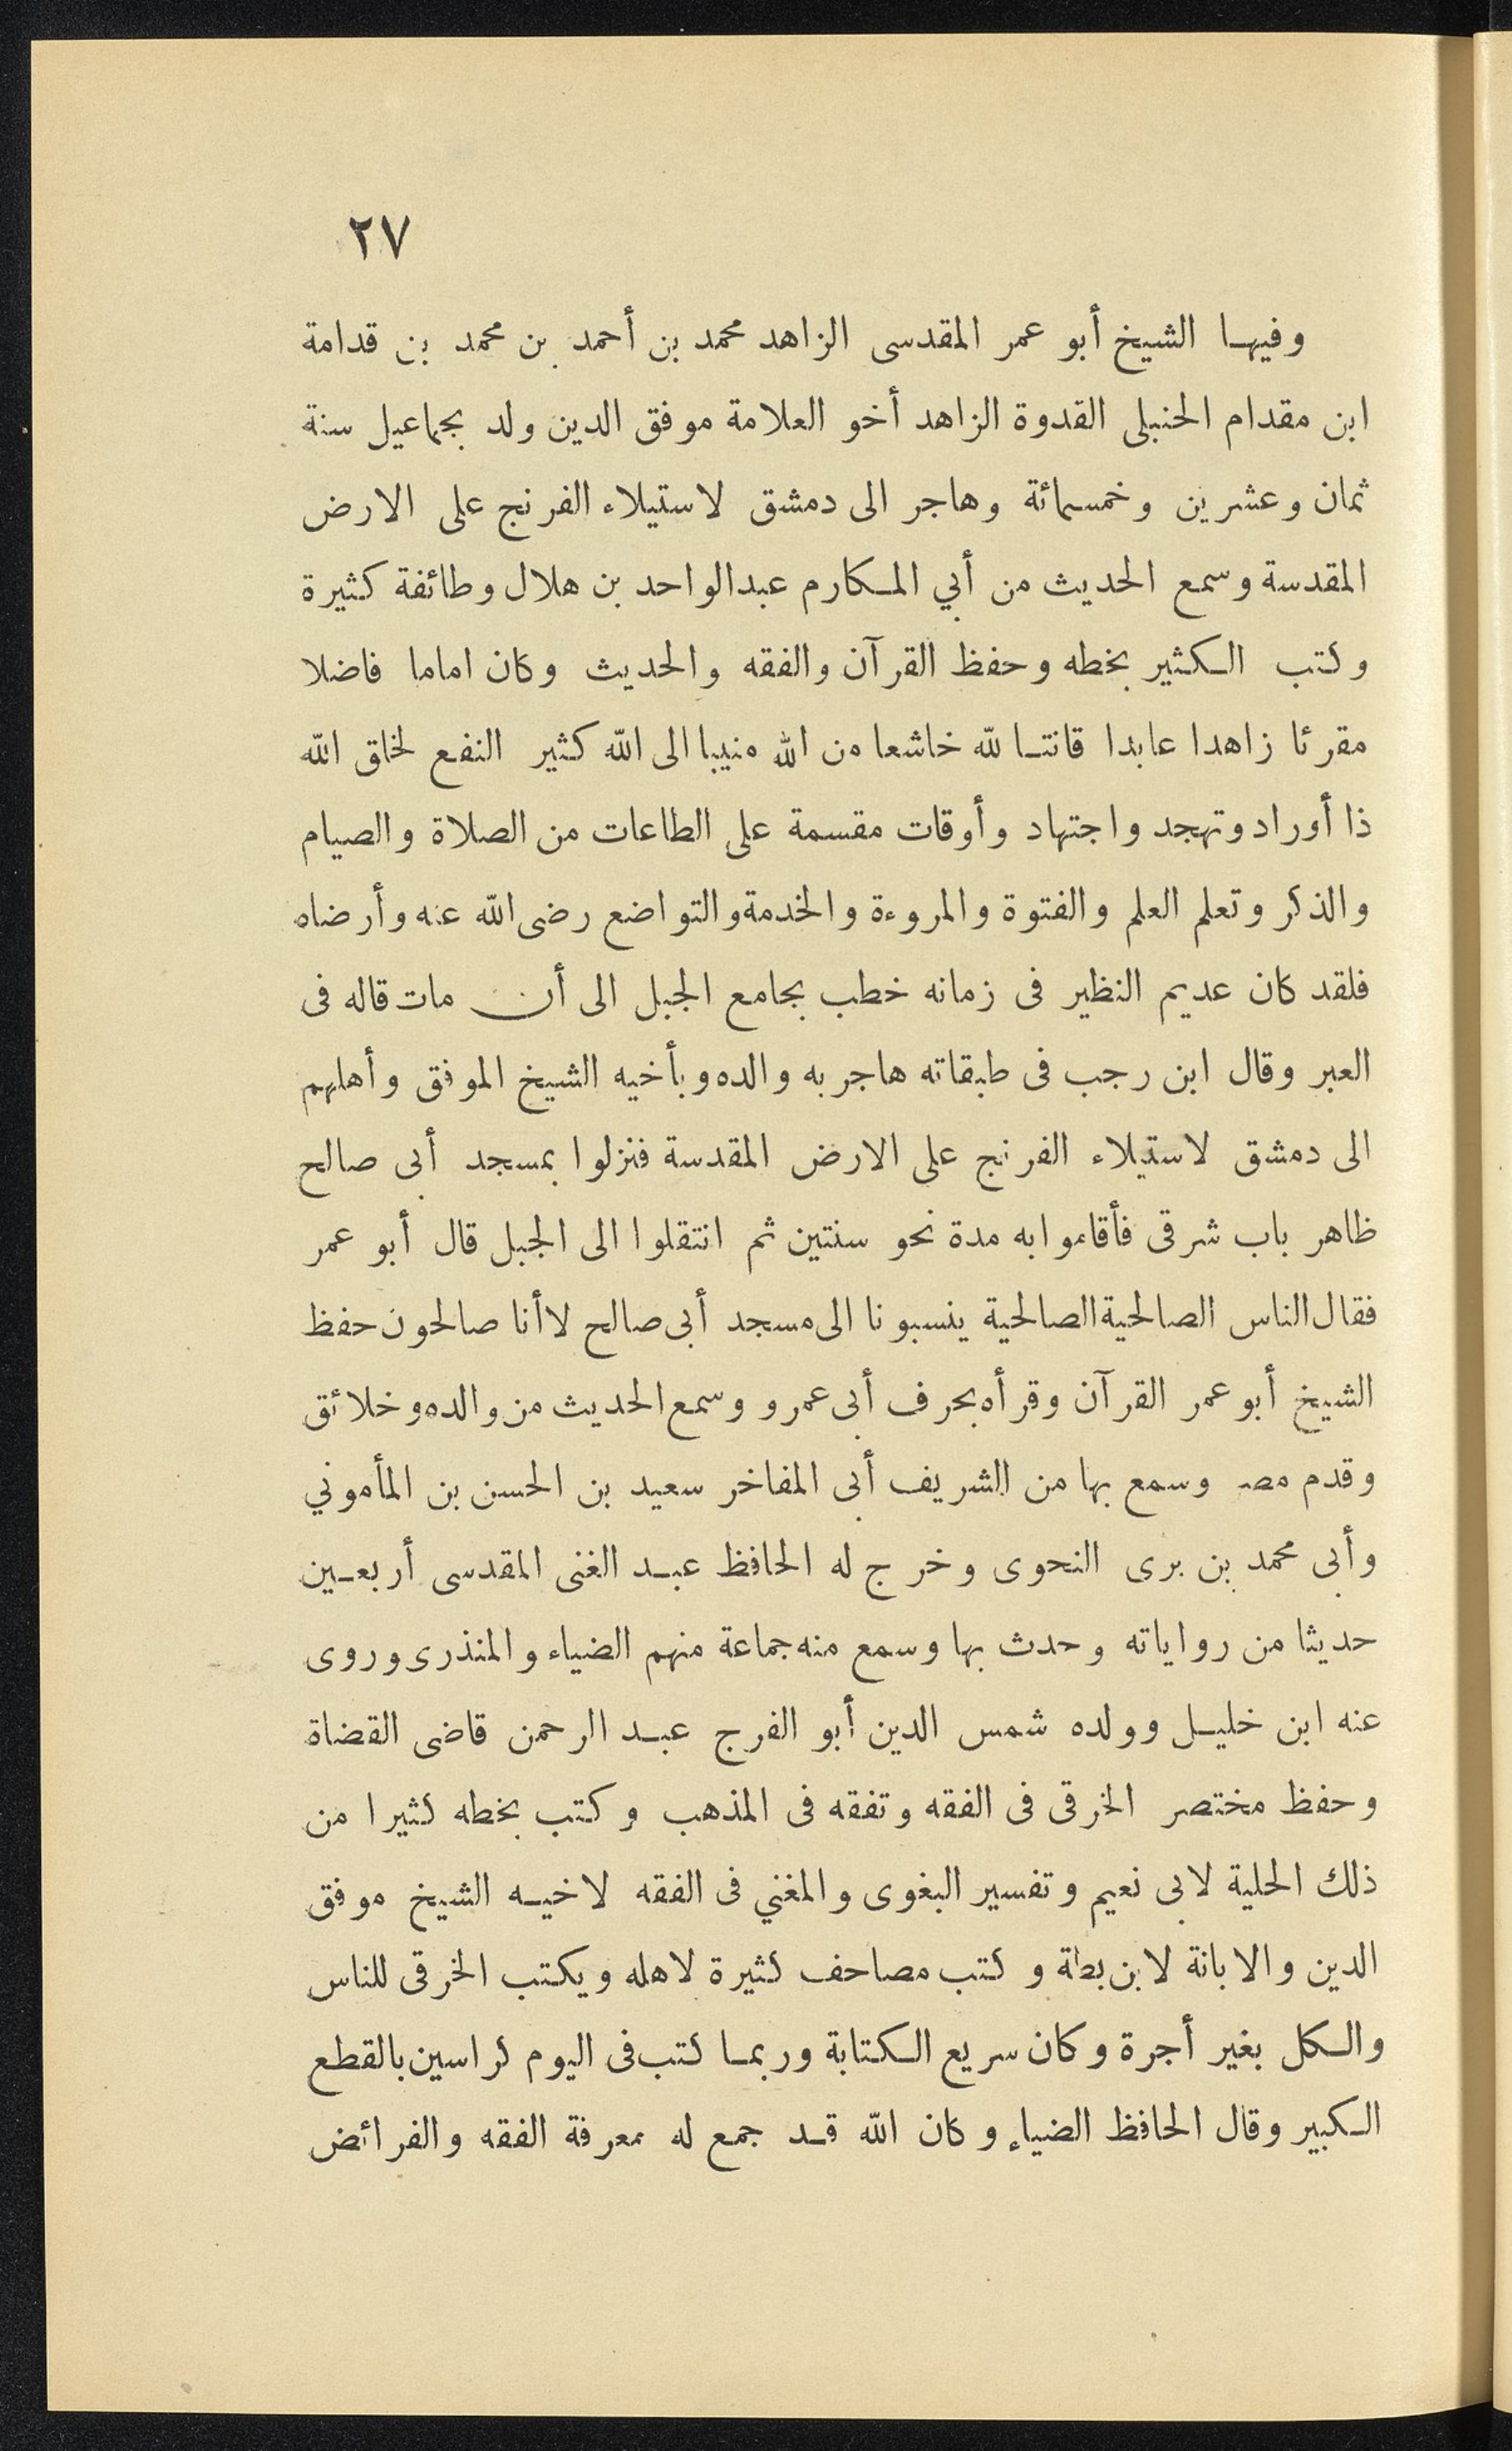 ٢٧
وفيها الشيخ أبو عمر المقدسى الزاهد محمد بن أحمد بن محمد بن قدامة
ابن مقدام الحنبلى القدوة الزاهد أخو العلامة موفق الدين ولد بجماعيل سنة
ثمان وعشرين وخمسمائة وهاجر الى دمشق لاستيلاء الفرنج على الارض
المقدسة وسمع الحديث من أبي المكارم عبدالواحد بن هلال وطائفة كثيرة
وكتب الكثير بخطه وحفظ القرآن والفقه والحديث وكان اماما فاضلا
مقرئا زاهدا عابدا قانتا لله خاشعا من الله منيبا الى الله كثير النفع لخلق الله
ذا أوراد وتهجد واجتهاد وأوقات مقسمة على الطاعات من الصلاة والصيام
والذكر وتعلم العلم والفتوة والمروءة والخدمة والتواضع رضى الله عنه وأرضاه
فلقد كان عديم النظير فى زمانه خطب بجامع الجبل الى أن مات قاله فى
العبر وقال ابن رجب فى طبقاته هاجر به والده وبأخيه الشيخ الموفق وأهلهم
الى دمشق لاستيلاء الفرنج على الارض المقدسة فنزلوا بمسجد أبى صالح
ظاهر باب شرقى فأقاموا به مدة نحو سنتين ثم انتقلوا الى الجبل قال أبو عمر
فقال الناس الصالحية الصالحية ينسبونا الى مسجد أبى صالح لا أنا صالحون حفظ
الشيخ أبو عمر القرآن وقرأه بحرف أبى عمرو وسمع الحديث من والده وخلائق
وقدم مصر وسمع بها من الشريف أبى المفاخر سعيد بن الحسن بن المأموني
وأبى محمد بن برى النحوى وخرج له الحافظ عبد الغنى المقدسى أربعين
حديثا من رواياته وحدث بها وسمع منه جماعة منهم الضياء والمنذرى وروى
عنه ابن خليل وولده شمس الدين أبو الفرج عبد الرحمن قاضى القضاة
وحفظ مختصر الخرقى فى الفقه وتفقه فى المذهب وكتب بخطه كثيرا من
ذلك الحلية لابى نعيم وتفسير البغوى والمغني فى الفقه لاخيه الشيخ موفق
الدين والابانة لابن بطة وكتب مصاحف كثيرة لاهله ويكتب الخرقى للناس
والكل بغير أجرة وكان سريع الكتابة وربما كتب فى اليوم كراسين بالقطع
الكبير وقال الحافظ الضياء وكان الله قد جمع له معرفة الفقه والفرائض